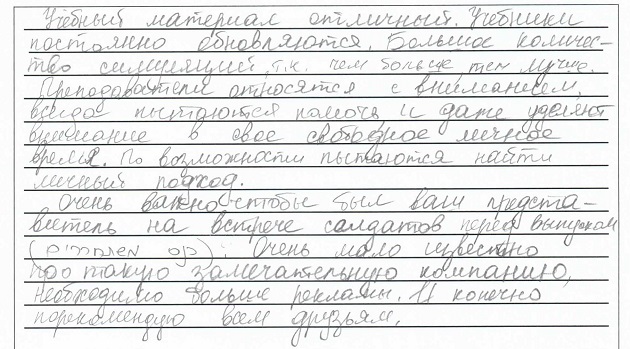 Учебный материал отличный. Учебники
постоянно обновляются. Большое количес-
тво симуляций, т.к. чем больше тем лучше.
Преподаватели относятся с вниманием,
всегда пытаются помочь и даже уделяют
внимание в свое свободное личное
время. По возможности пытаются найти
личный подход.
Очень важно чтобы был ваш предста-
витель на встрече солдатов перед выпуском
(קון משתחררים). Очень мало известно
про такую замечательную компанию,
необходимо больше рекламы. И конечно
порекомендую всем друзьям.